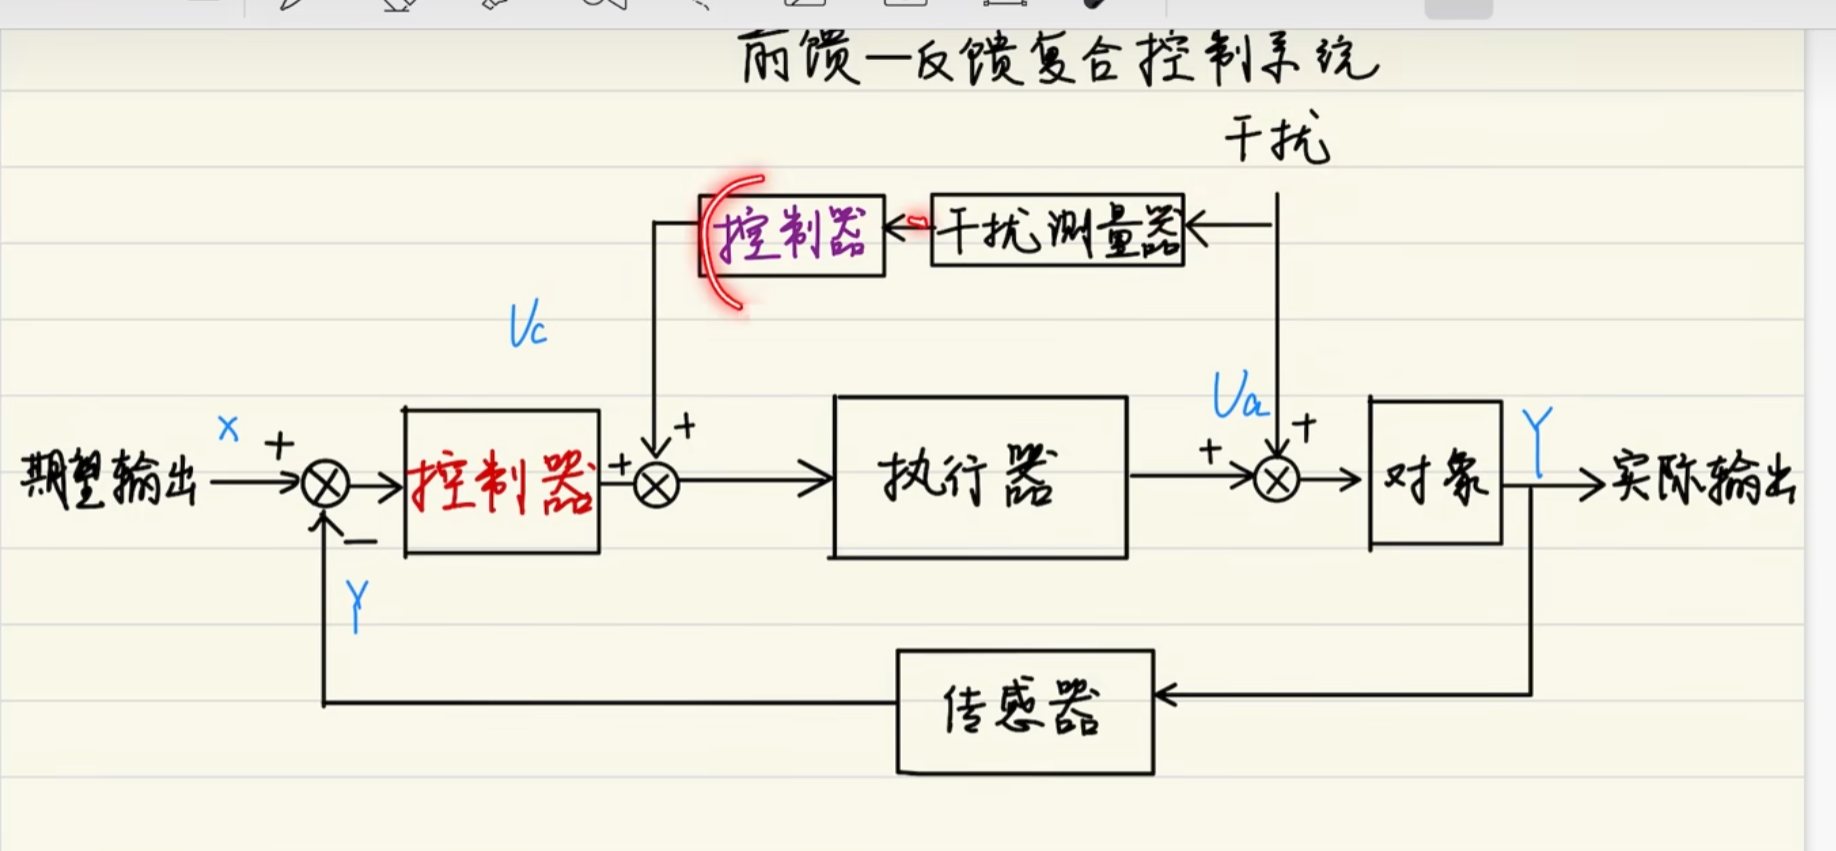 前馈—反馈复合控制系统
干扰
控制器
干扰测量器
Uc
Ua
+
+
x
+
+
+
Y
期望输出
控制器
执行器
对象
实际输出
—
Y
传感器